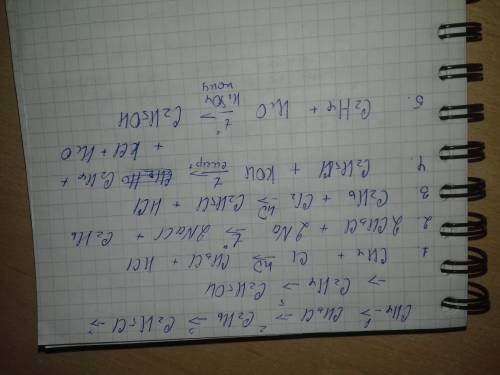 CH4 →¹ CH3Cl →² C2H6 →³ C2H5Cl →⁴
→ C2H4 →⁵ C2H5OH
1. CH4 + Cl →hν CH3Cl + HCl
2. 2CH3Cl + 2Na →t° 2NaCl + C2H6
3. C2H6 + Cl2 →hν C2H5Cl + HCl
4. C2H5Cl + KOH →спирт t C2H4 +
+ KCl + H2O
5. C2H4 + H2O →t° H2SO4 конц C2H5OH